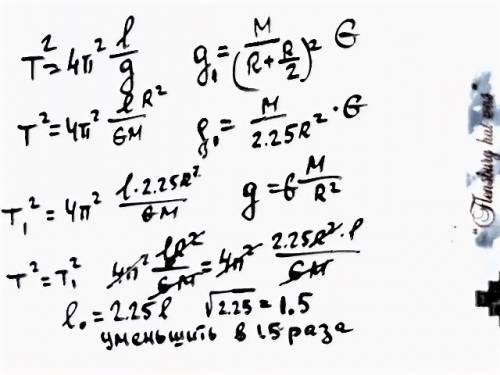 T² = 4π² l/g    g₁ = M/(R + R/2)² G
T² = 4π² lR²/GM    g₁ = M/2.25R² · G
T₁² = 4π² l·2.25R²/GM    g = G M/R²
T² = T₁²    4π² lR²/GM = 4π² 2.25R²·l/GM
l₀ = 2.25l    √2.25 = 1.5
уменьшить в 1.5 раза
"Flensburg hat was